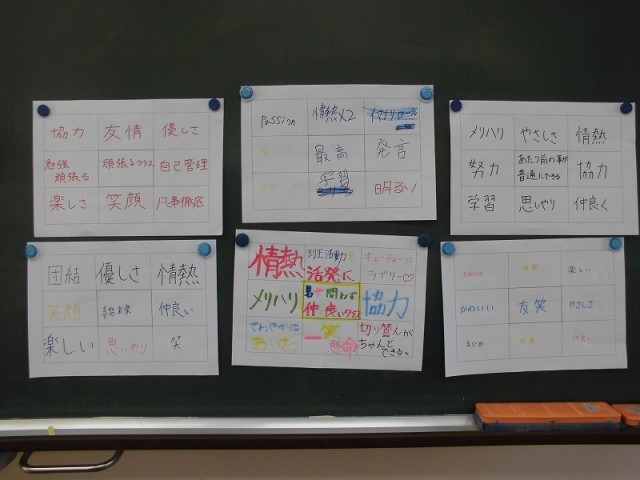 協力 友情 優しさ
勉強
頑張る
頑張るクラス 自己管理
楽しさ 笑顔 凡事徹底
passion 情熱×2
最高 発言
学習 明るい
メリハリ やさしさ 情熱
努力
あたり前の事が
普通にできる
協力
学習 思いやり 仲良く
団結 優しさ 情熱
笑顔 仲良い
楽しい 思いやり 笑
情熱
活発に
キューティーに
ラブリー♡
メリハリ
男女問わず
仲良いクラス
協力
さわやかな
あいさつ
一笑
懸命
切り替えが
ちゃんと
できる。
楽しい
かわいい 友笑 やさしさ
まじめ 仲良し